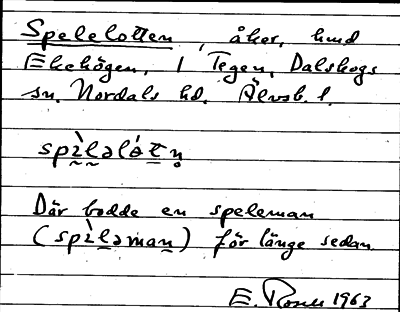 Spelelotten, åker, hmd
Ekehögen, 1 Tegen, Dalskogs
sn. Nordals hd. Älvsb. l.
spìlǝlót̲n̥
Där bodde en speleman
(spìl̲ǝman̲) för länge sedan.
E. 1963